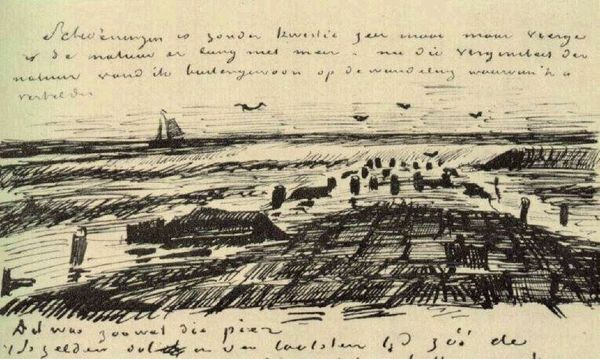 Scheveningen is zonder kwestie zeer mooi maar vierge
is de natuur er lang niet meer. nu die der
natuur vond ik buitengewoon op de wandeling waarvan ik u
vertelde
Dit was zoowat die pier
zelden laatsten tijd zóó de